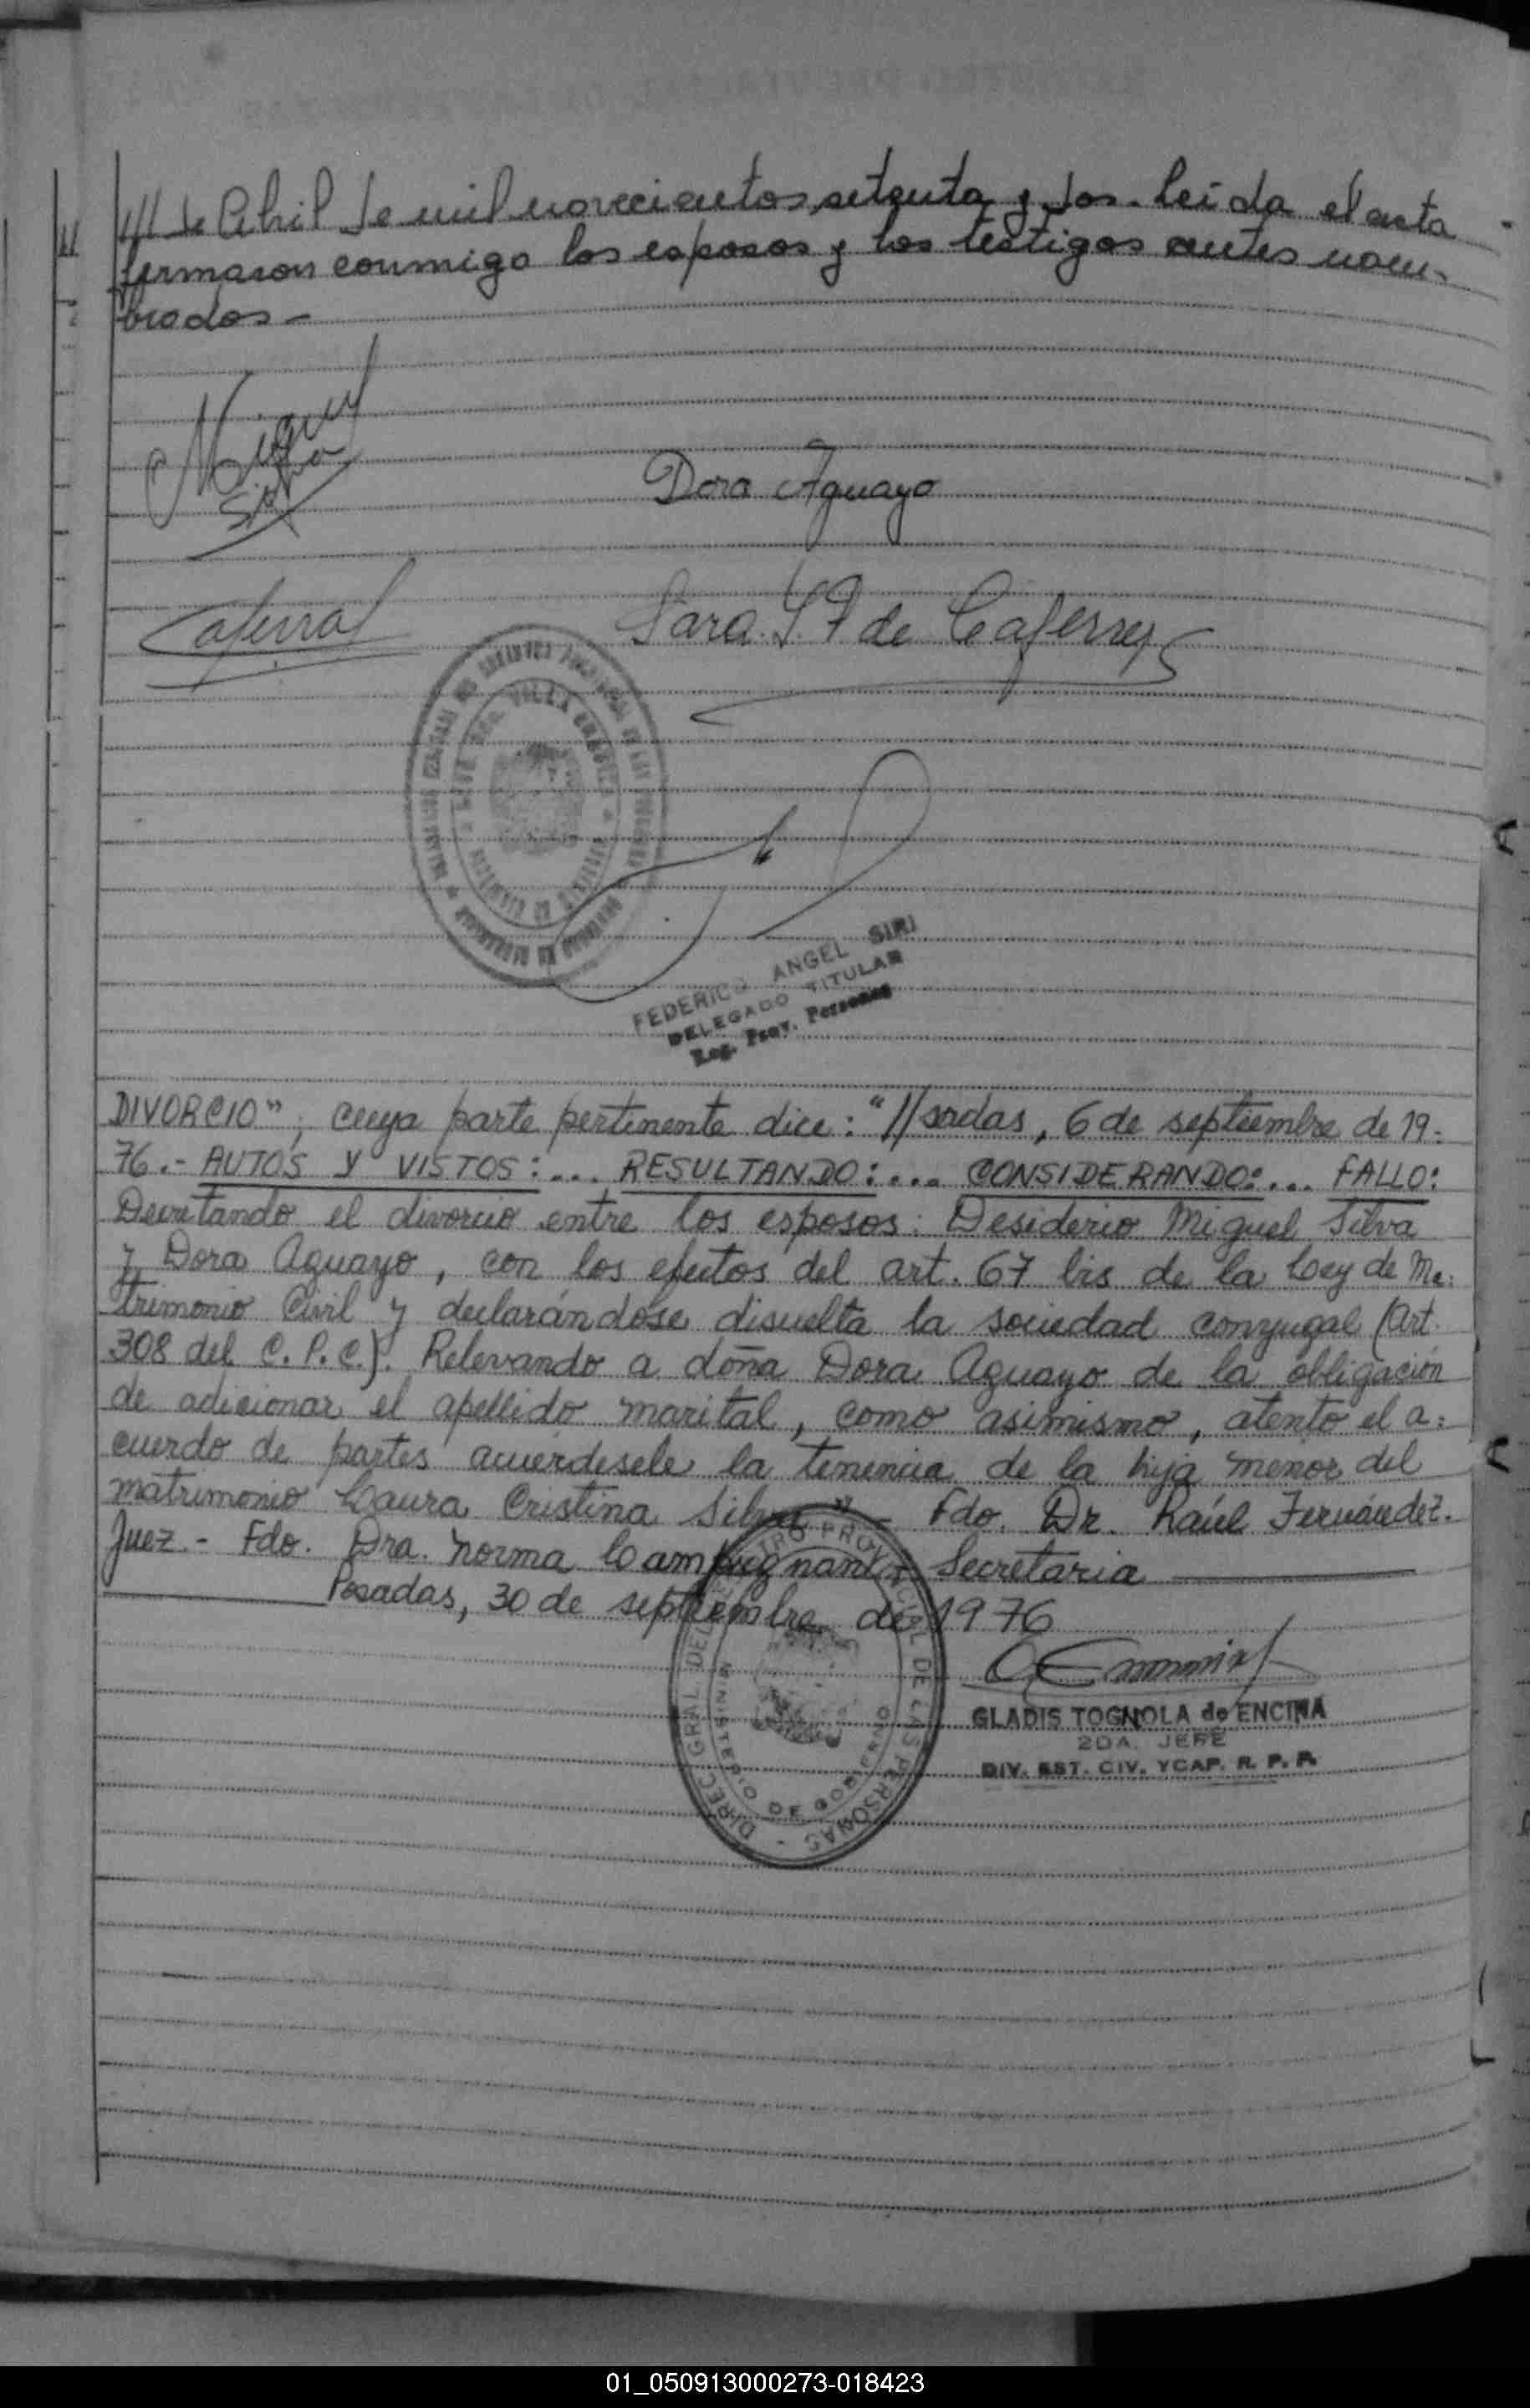 /// de Abril de mil novecientos setenta y dos. Leída el acta
firmaron conmigo los esposos y los testigos antes nom-
brados -
Miguel
Silva
Dora Aguayo
Caferral
Sara. de
VILLA
FEDERICO ANGEL SIRI
DELEGADO TITULAR
Reg. Prov. Personas
DIVORCIO", cuya parte pertinente dice: "//sadas, 6 de septiembre de 19-
76.- AUTOS Y VISTOS:... RESULTANDO:... CONSIDERANDO:... FALLO:
Decretando el divorcio entre los esposos: Desiderio Miguel Silva
y Dora Aguayo, con los efectos del art. 67 bis de la Ley de Ma-
trimonio Civil y declarándose disuelta la sociedad conyugal (Art.
308 del C.P.C.). Relevando a doña Dora Aguayo de la obligación
de adicionar el apellido marital, como asimismo, atento el a-
cuerdo de partes acuérdesele la tenencia de la hija menor del
matrimonio Laura Cristina Silva" - Fdo. Dr. Raúl Fernández.
Juez.- Fdo. Dra. Norma Secretaria
Posadas, 30 de septiembre de 1976
DIREC. GRAL. DEL REGISTRO PROVINCIAL DE LAS PERSONAS
MINISTERIO DE GOBIERNO
GLADIS TOGNOLA de ENCINA
2DA. JEFE
DIV. EST. CIV. YCAP. R. P. P.
01_050913000273-018423